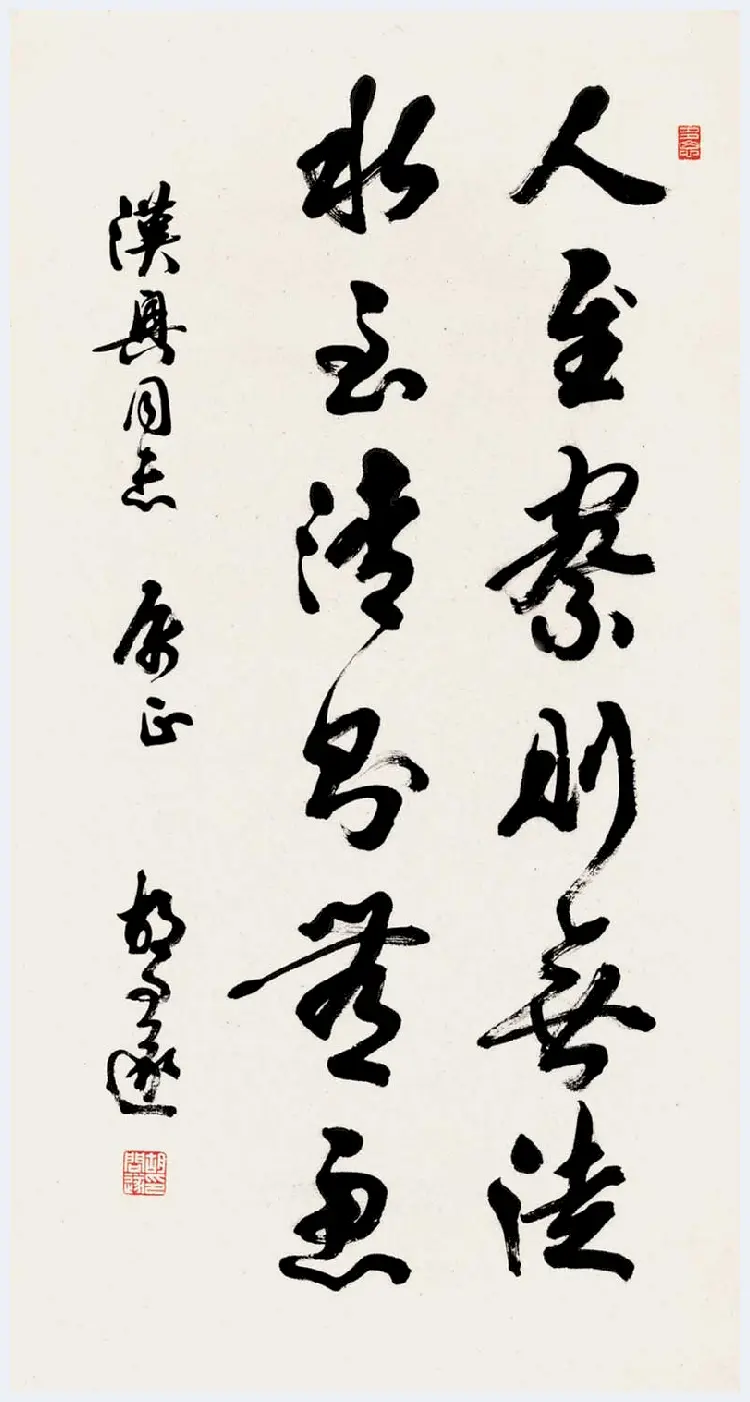 人至察則無徒
水至清則無魚
漢興同志 属正
胡問遂
胡問遂印